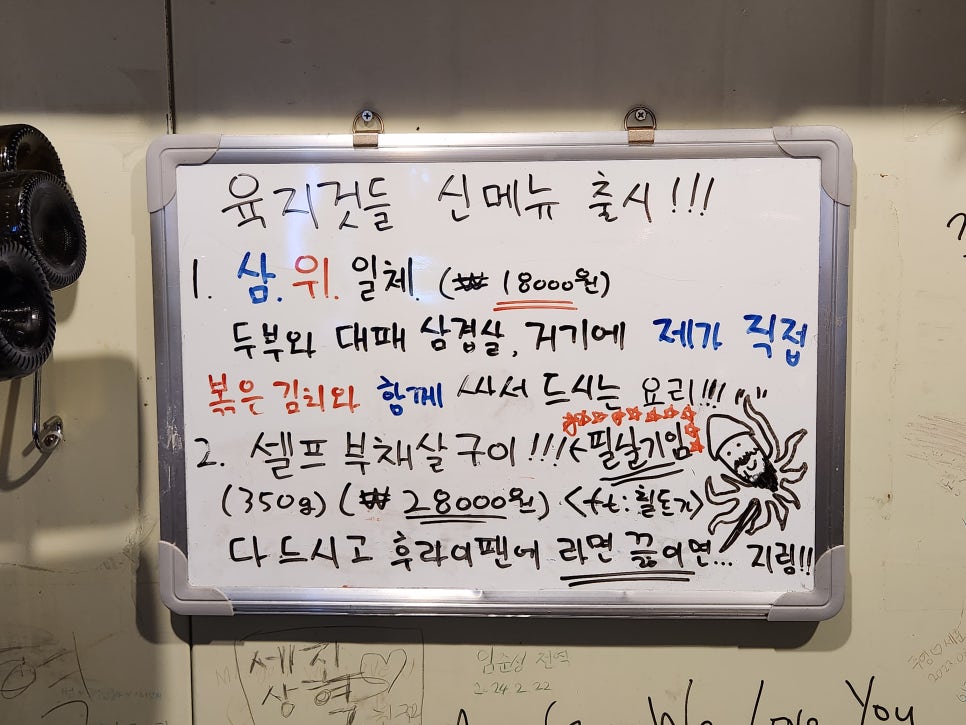 육지것들 신메뉴 출시!!!
1. 삼.위.일체. (₩ 18000원)
두부와 대패 삼겹살, 거기에 제가 직접
볶은 김치와 함께 싸서 드시는 요리!!!
2. 셀프 부채살구이!!! ← 필살기임
(350g) (₩ 28000원) <ft: 횔돈가>
다 드시고 후라이팬에 라면 끓이면... 지렁!!
세진
상혁
임준성 전역
2.24.2.22
We Love You